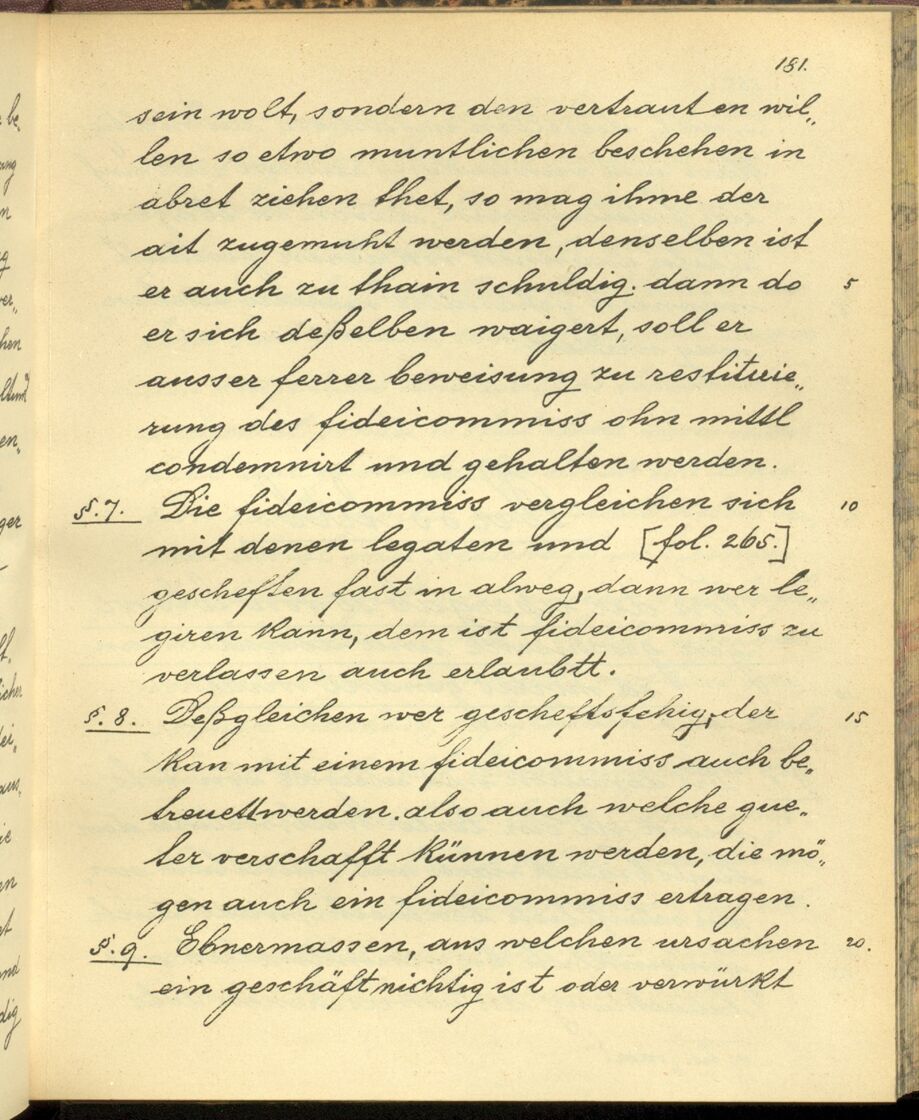 181.
sein wolt, sondern den vertrauten wil„
len so etwo muntlichen beschehen in
abret ziehen thet, so mag ihme der
ait zugemuht werden, denselben ist
er auch zu thain schuldig. dann do 5
er sich deßelben waigert, soll er
ausser ferrer beweisung zu restituie„
rung des fideicommiss ohn mittl
condemnirt und gehalten werden.
§. 7. Die fideicommiss vergleichen sich 10
mit denen legaten und [fol. 265.]
gescheften fast in alweg, dann wer le„
giren kann, dem ist fideicommiss zu
verlassen auch erlaubtt.
§. 8. Deßgleichen wer gescheftsfehig, der 15
kan mit einem fideicommiss auch be„
treuett werden. also auch welche gue„
ter verschafft künnen werden, die mö„
gen auch ein fideicommiss ertragen.
§. 9. Ebnermassen, aus welchen ursachen 20.
ein geschäft nichtig ist oder verwürkt